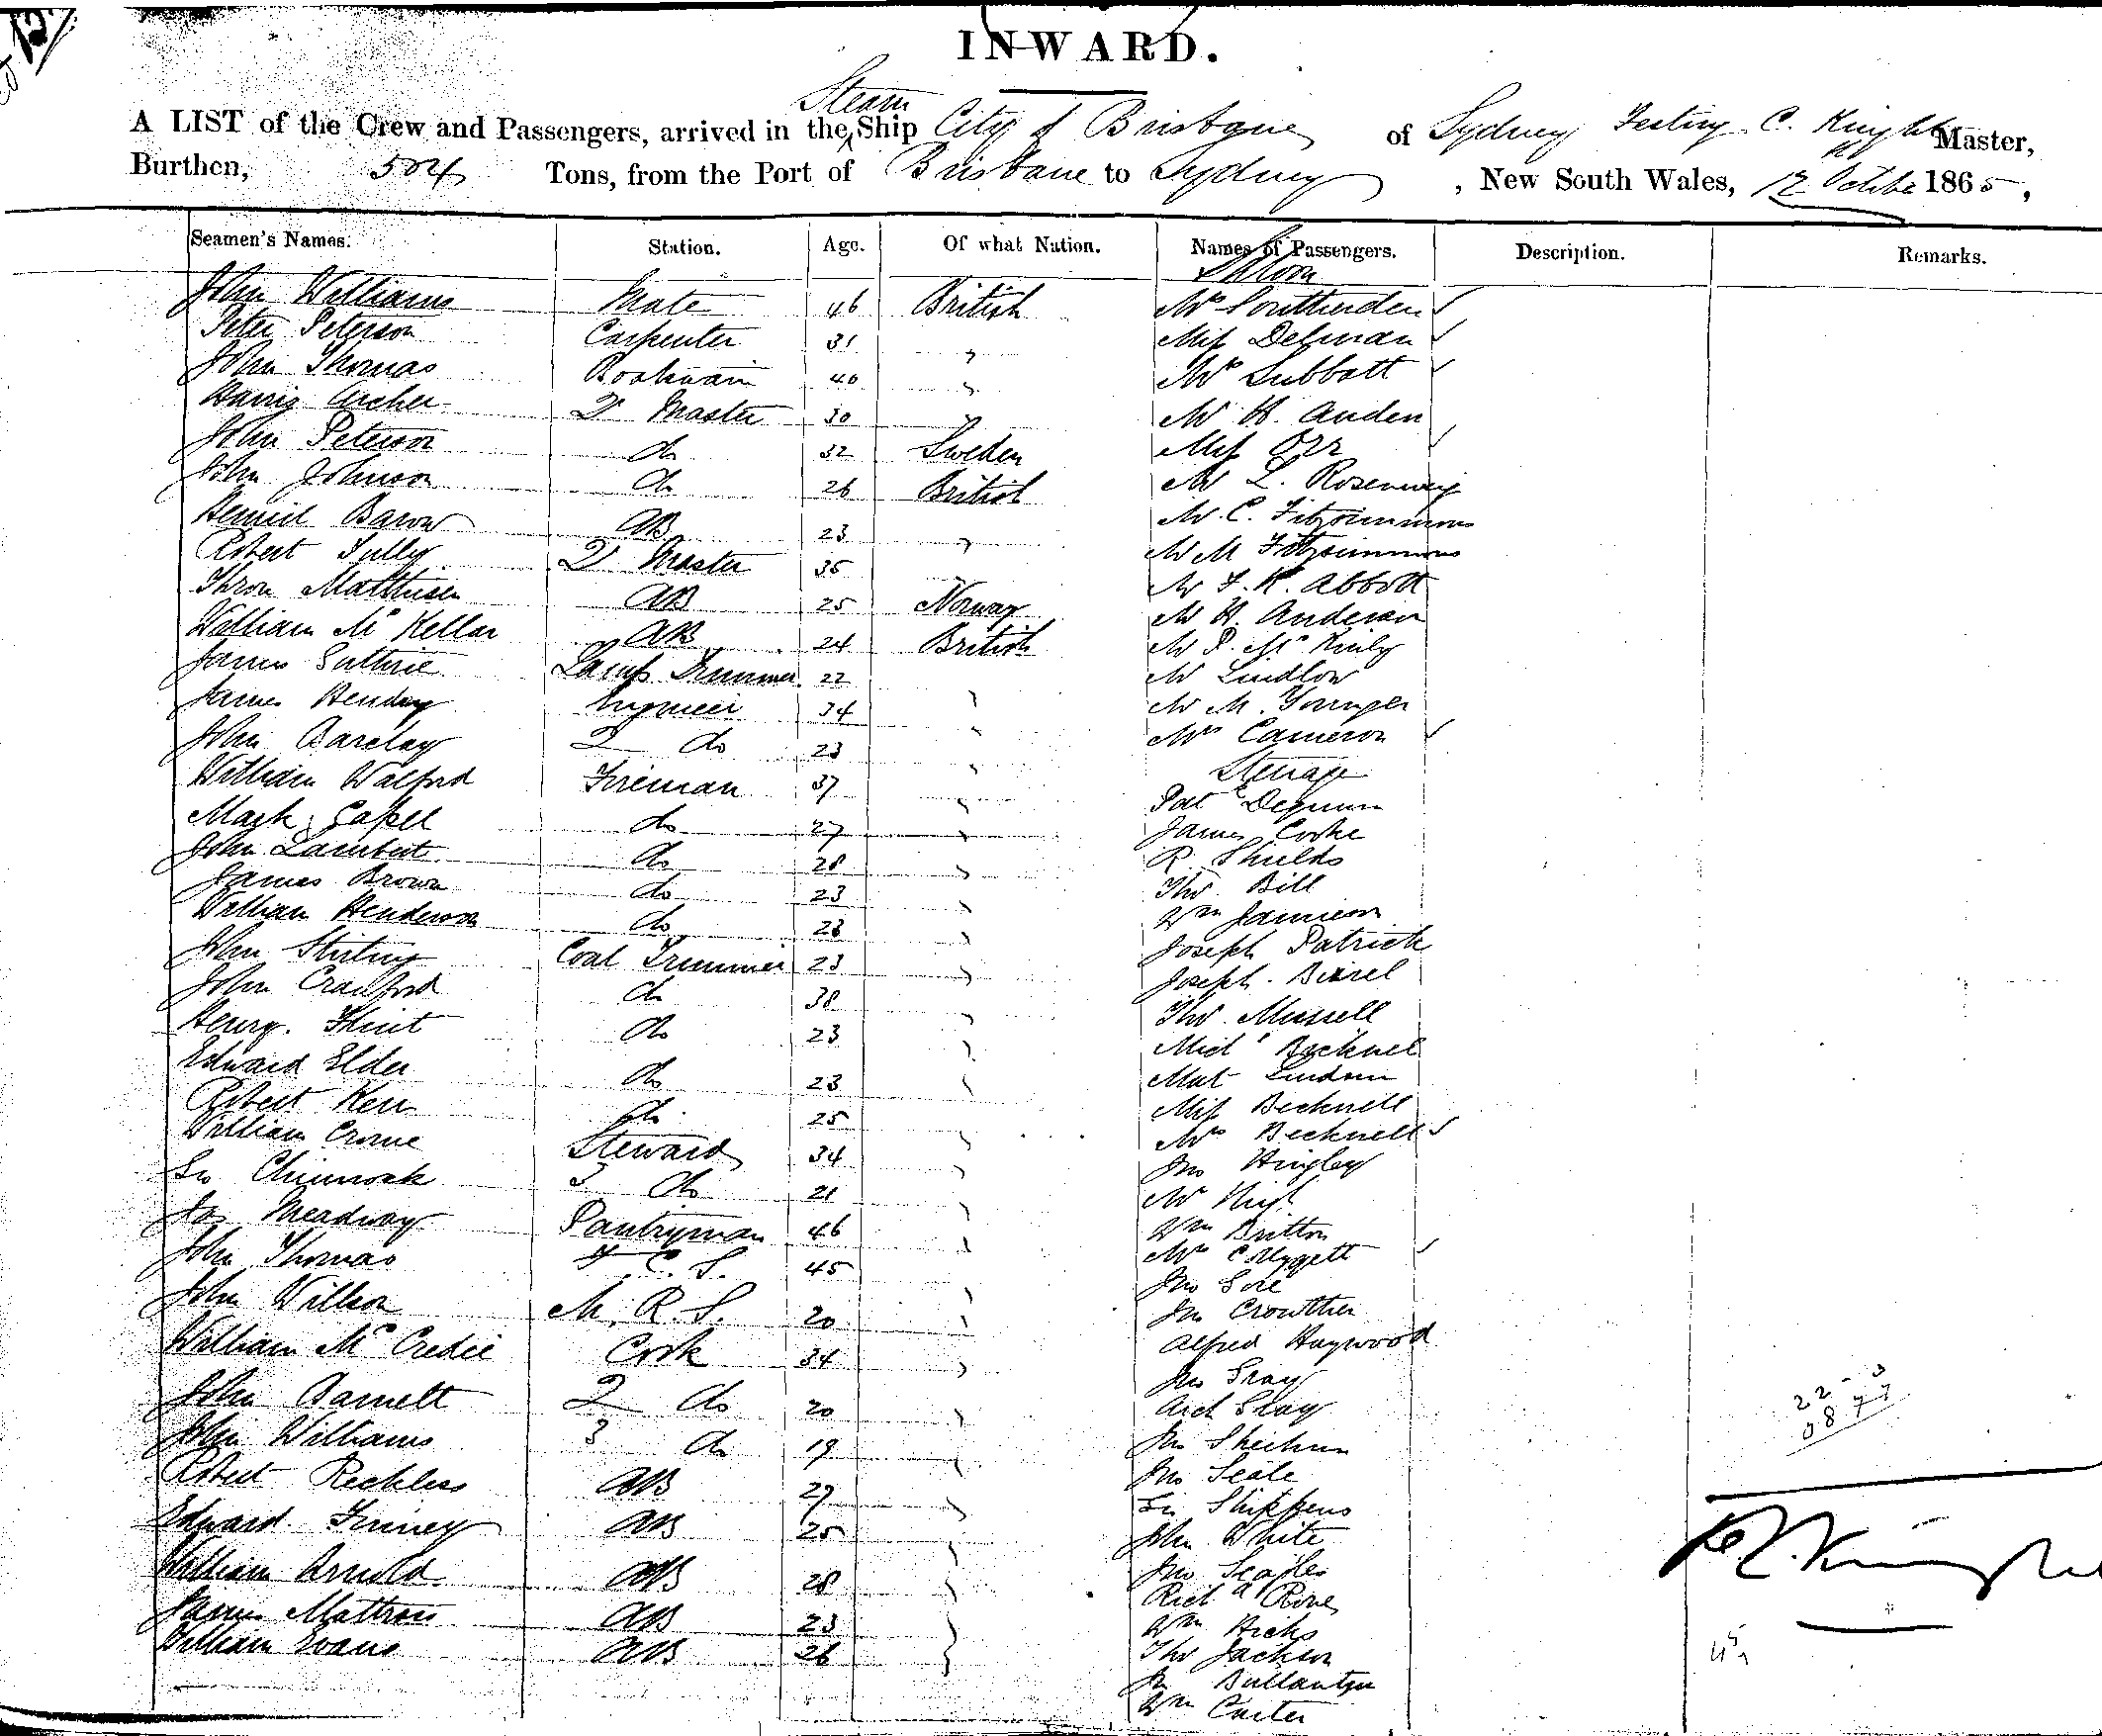 INWARD.
A LIST of the Crew and Passengers, arrived in the Steam Ship City of Brisbane of Sydney C. Knight Master,
Burthen, 504 Tons, from the Port of Brisbane to Sydney, New South Wales, 12 October 1865,
Seamen's Names. Station. Age. Of what Nation. Names of Passengers. Description. Remarks.
Saloon
John Williams Mate 46 British Mrs
Peter Peterson Carpenter 31 " Miss Delman
John Thomas Boatswain 40 " Mrs Subbott
Archer Qr Master 30 " Mr H. Anden
John Peterson do 32 Sweden Miss Orr
John Johnson do 26 British Mr L.
Barow AB 23 " Mr C. Fitzsimmons
Robert Tully Qr Master 35 Mr M Fitzsimmons
Matthisen AB 25 Norway Mr F. K. Abbott
William McKellar AB 24 British Mr H. Anderson
James Guthrie Lamp Trimmer 22 Mr P. Mc
James Hendry Engineer 34 " Mr Lindlow
John Barclay 2 do 23 " Mr M. Younger
William Walford Fireman 37 " Mrs Cameron
Steerage
Mark Capel do 27 " Pat
John Lambert do 28 " James Cooke
James Brown do 23 " R. Shields
William Henderson do 28 " Thos. Bill
John Stirling Coal Trimmer 23 " Wm Jamieson
John Crawford do 38 " Joseph Patrick
Henry Flint do 23 " Joseph
Edward Elder do 23 " Thos. Mussell
Robert Kerr do 25 " Michl Becknell
William Crome Steward 34 " Mat
Chinnock 2 do 21 " Miss Becknell
Jas Meadway Pantryman 46 " Mrs Becknell
John Thomas F. C. S. 45 " Jno Hingley
John Wilson M. R. S. 20 " Mr
William McCredie Cook 34 " Wm Britton
John Barnett 2 do 20 " Mrs
John Williams 3 do 19 " Jno Gore
Robert Reckless AB 27 " Jno Crowther
Edward Finney AB 25 " Alfred Haywood
William Arnold AB 28 " Jno Gray
James Mattross AB 23 " Arch Gray
William Evans AB 26 " Jno
Jno Seale
Shippens
John White
Jno Seales
Richd
Wm Hicks
Thos Jackson
Ballantyn
Wm Carter